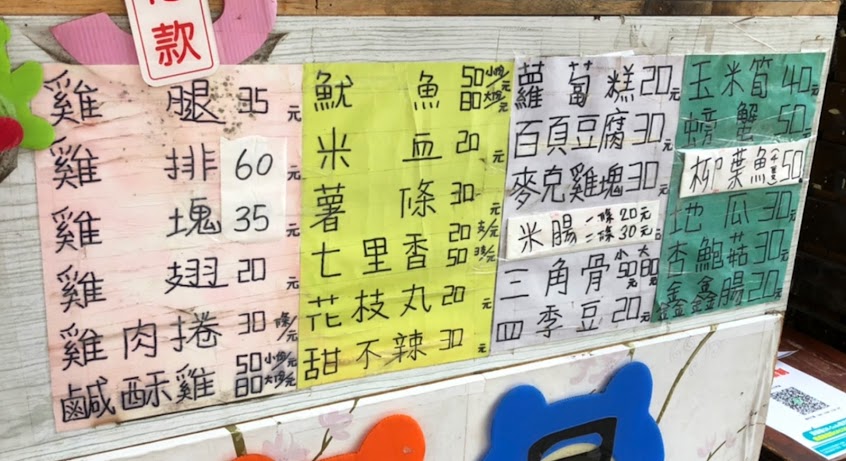 款
雞腿 35元
雞排 60元
雞塊 35元
雞翅 20元
雞肉捲 30條/元
鹹酥雞 50小包/元 80大包/元
魷魚 50小包/元 80大包/元
米血 20元
薯條 30元
七里香 20支/元 50 3支/元
花枝丸 20元
甜不辣 30元
蘿蔔糕 20元
百頁豆腐 30元
麥克雞塊 30元
米腸 一條20元 二條30元
三角骨 小50元 大80元
四季豆 20元
玉米筍 40元
螃蟹 50元
柳葉魚 50
地瓜 30元
杏鮑菇 30元
鑫鑫腸 20元